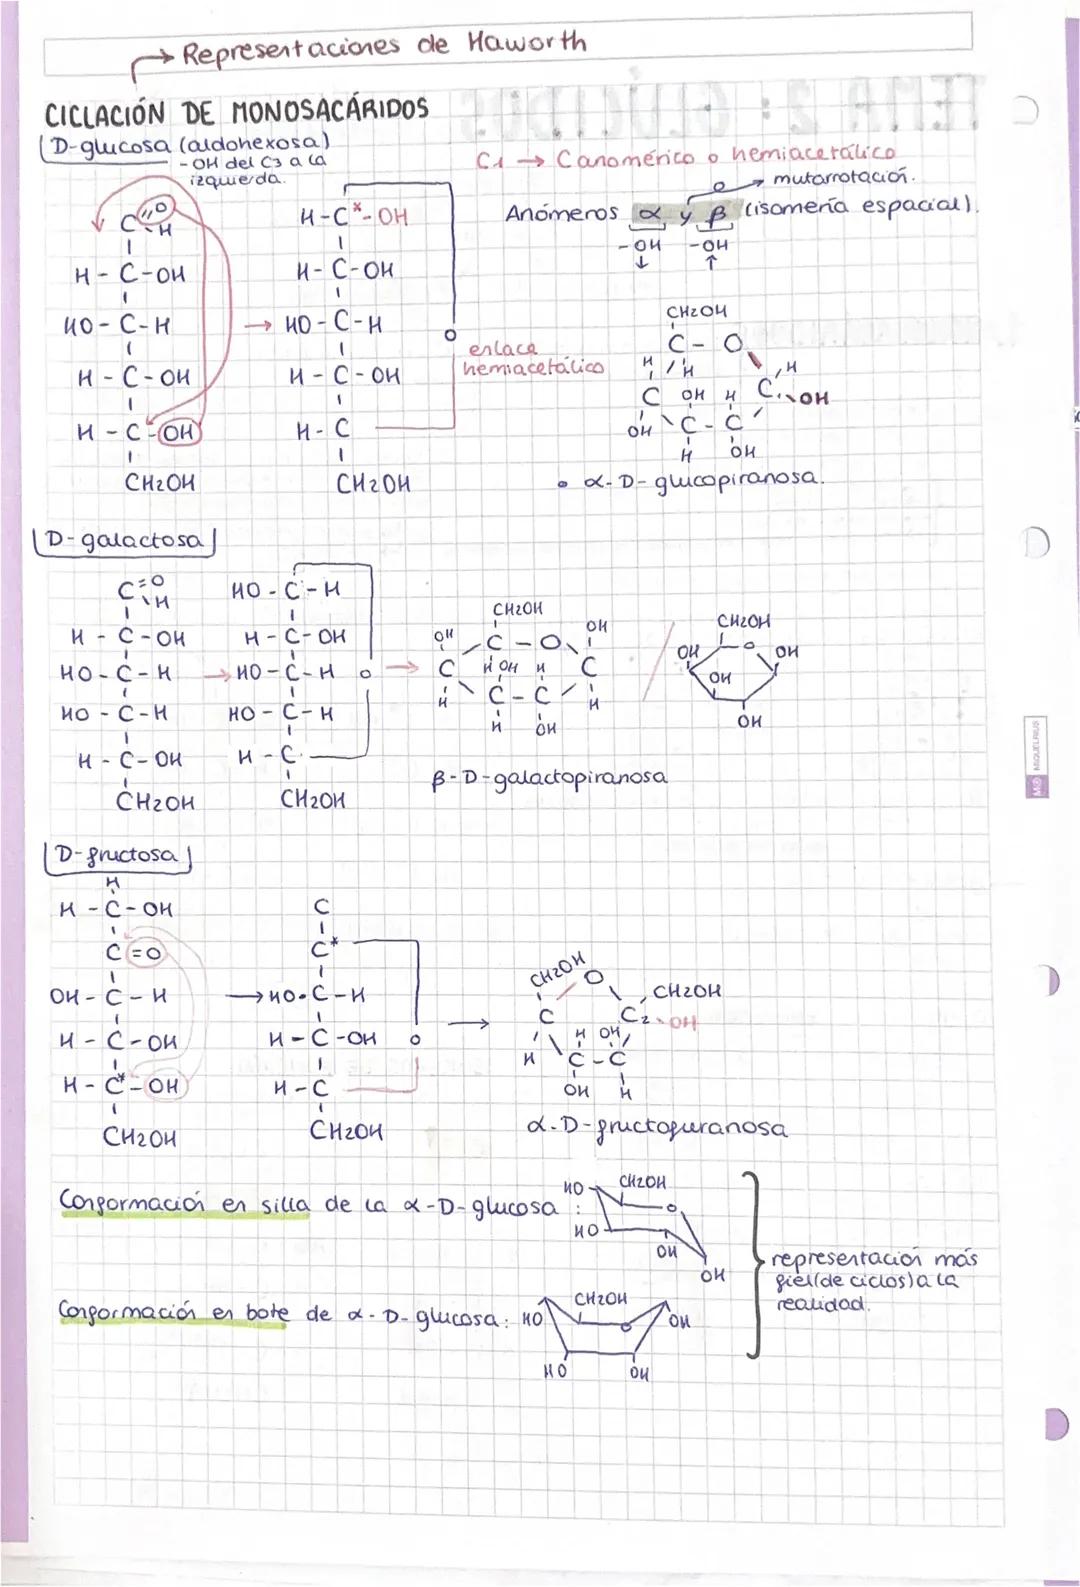 → Representaciones de Haworth
CICLACIÓN DE MONOSACÁRIDOS
D-glucosa (aldohexosa)
-OH del C3 a la
izquierda.
C1 → C anomérico o hemiacetálico
→ mutarrotación.
Anómeros α y β (isomería espacial).
-OH -OH
↓ ↑
C=O
H
H-C*-OH
H-C-OH
H-C-OH
HO-C-H
→ HO-C-H
O
H-C-OH
H-C-OH
H-C-OH
H-C
CH2OH
CH2OH
enlace
hemiacetálico
CH2OH
C-O
H H H
C OH H C OH
OH C-C
H OH
• α-D-glucopiranosa.
D-galactosa
C=O
H
HO-C-H
H-C-OH
H-C-OH
HO-C-H
→ HO-C-H O →
HO-C-H
HO-C-H
H-C-OH
H-C
CH2OH
CH2OH
CH2OH
OH C-O OH
C H OH H C
H C-C H
H OH
/
CH2OH
OH O OH
OH
OH
β-D-galactopiranosa
D-fructosa
H
H-C-OH
C
C=O
C*
OH-C-H
→ HO-C-H
H-C-OH
H-C-OH O →
H-C*-OH
H-C
CH2OH
CH2OH
CH2OH O CH2OH
C C2 OH
H H OH
C-C
OH H
α-D-fructofuranosa
Conformación en silla de la α-D-glucosa :
HO CH2OH
O
HO
OH
OH
Conformación en bote de α-D-glucosa:
HO CH2OH OH
HO OH
representación más
fiel (de ciclos) a la
realidad.
MIQUELRIUS